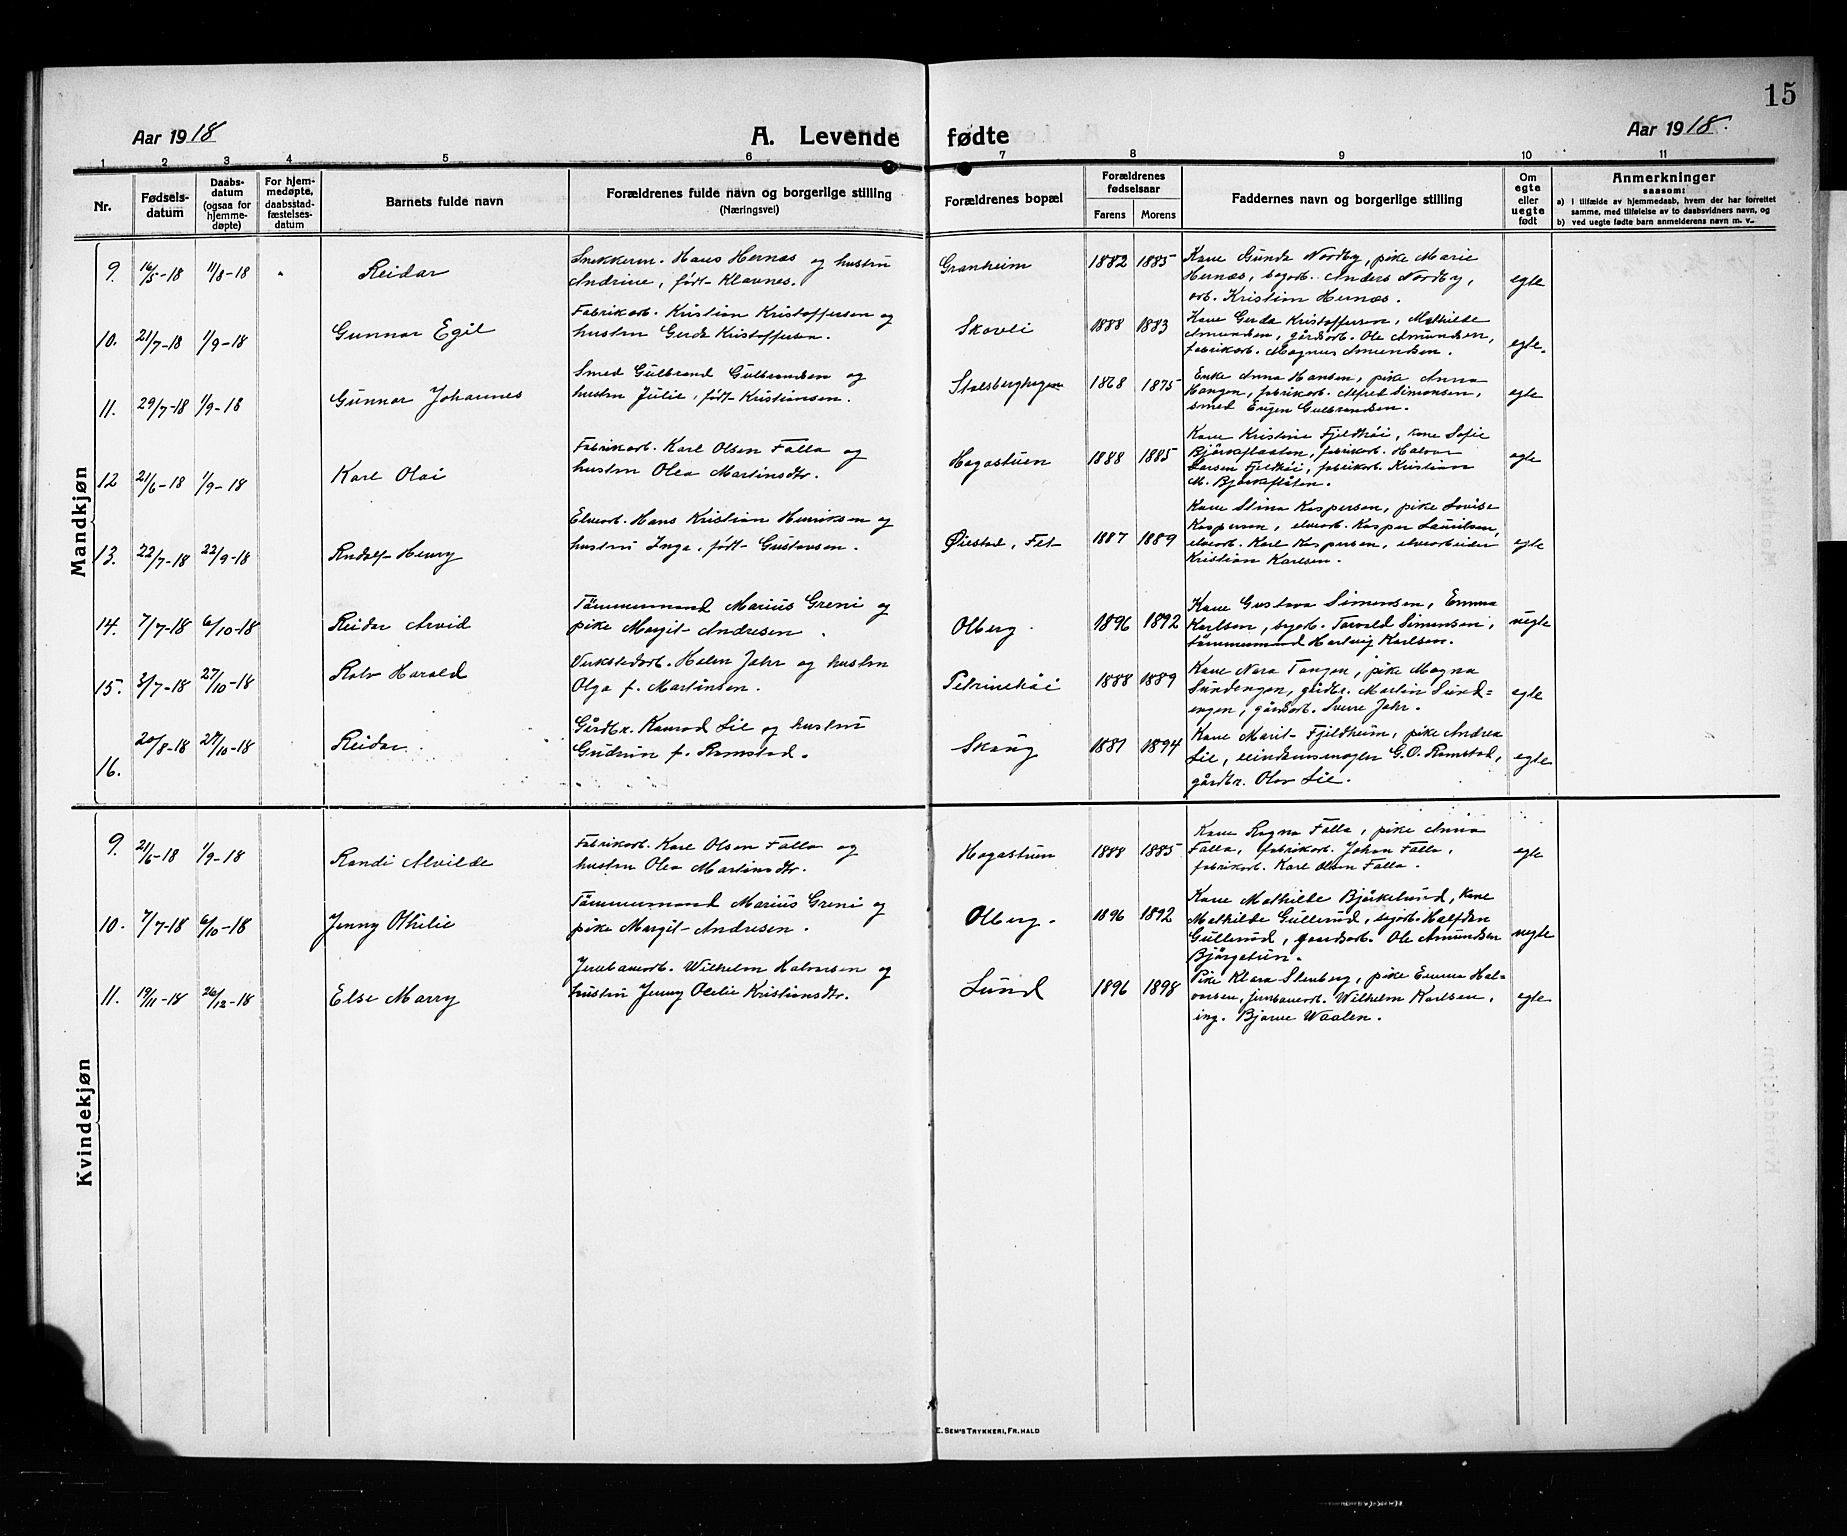 15
Aar 1918
A. Levende fødte
Aar 1918.
1 2 3 4 5 6 7 8 9 10 11
Nr.
Fødsels-
datum
Daabs-
datum
(ogsaa for
hjemme-
døpte)
For hjem-
medøpte,
daabsstad-
fæstelses-
datum
Barnets fulde navn
Forældrenes fulde navn og borgerlige stilling
(Næringsvei)
Forældrenes bopæl
Forældrenes
fødselsaar
Farens Morens
Faddernes navn og borgerlige stilling
Om
egte
eller
uegte
født
Anmerkninger
saasom:
a) i tilfælde av hjemmedaab, hvem der har forrettet
samme, med tilføielse av to daabsvidners navn, og
b) ved uegte fødte barn anmelderens navn m. v.
Mandkjøn
9. 16/5-18 11/8-18 Reidar
Snekkerm. Hans Hernæs og hustru
Andrine, født Klavnes.
Granheim 1882 1885
Kone Gunda Nordby, pike Marie
Hernæs, sagarb. Anders Nordby,
arb. Kristian Hernæs.
egte
10. 21/7-18 1/9-18 Gunnar Egil
Fabrikarb. Kristian Kristoffersen og
hustru Gerda Kristoffersen.
Skovli 1888 1883
Kone Gerda Kristoffersen, Mathilde
Amundsen, gårdsarb. Ole Amundsen,
fabrikarb. Magnus Amundsen.
egte.
11. 29/7-18 1/9-18 Gunnar Johannes
Smed Gulbrand Gulbrandsen og
hustru Julie, født Kristiansen.
Stalsberghagen 1868 1875
Enke Anna Hansen, pike Anna
Haugen, fabrikarb. Alfred Simonsen,
smed Eugen Gulbrandsen.
egte
12 21/6-18 1/9-18 Karl Olai
Fabrikarb. Karl Olsen Falla og
hustru Olea Martinsdtr.
Hagastuen 1888 1885
Kone Kristine Fjeldhøi, kone Sofie
Bjørkeflaaten, fabrikarb. Halvor
Larsen Fjeldhøi, fabrikarb. Kristian
M. Bjørkeflåten.
egte
13. 22/7-18 22/9-18 Rudolf Henry
Elvearb. Hans Kristian Henriksen og
hustru Inga, født Gustavsen.
Øiestad, Fet 1887 1889
Kone Stina Kaspersen, pike Lovise
Kaspersen, elvearb. Kasper Lauritsen,
elvearb. Karl Kaspersen, elvearbeider
Kristian Karlsen.
egte
14. 7/7-18 6/10-18 Reidar Arvid
Tömmermand Marius Greni og
pike Margit Andresen.
Olberg. 1896 1892
Kone Gustava Simensen, Emma
Karlsen, sagarb. Torvald Simensen,
tömmermand Hartvig Karlsen.
uegte
15. 2/7-18 27/10-18 Rolv Harald
Verkstedarb. Holm Jahr og hustru
Olga f. Martinsen.
Petrinehøi 1888 1889
Kone Nora Tangen, pike Magna
Sundengen, gårdbr. Martin Sund=
engen, gårdsarb. Sverre Jahr.
egte
16. 20/8-18 27/10-18 Reidar.
Gårdbr. Konrad Lie og hustru
Gudrun f. Ramstad.
Skaug 1881 1894
Kone Marit Fjeldheim, pike Andrea
Lie, eiendomsmægler G. O. Ramstad,
gårdbr. Olav Lie.
egte
Kvindekjøn
9. 21/6-18 1/9-18 Randi Alvilde
Fabrikarb. Karl Olsen Falla og
hustru Olea Martinsdtr.
Hagastuen 1888 1885
Kone Ragna Falla, pike Anna
Falla, fabrikarb. Johan Falla,
fabrikarb. Karl Olsen Falla.
egte
10. 7/7-18 6/10-18 Jenny Othilie
Tömmermand Marius Greni og
pike Margit Andresen.
Olberg. 1896 1892
Kone Mathilde Bjørkelund, kone
Mathilde Gullerud, sagarb. Halfdan
Gullerud, gaardsarb. Ole Amundsen
Bjørgetun.
uegte
11. 19/11-18 26/12-18 Else Marry
Jernbanearb. Wilhelm Halvorsen og
hustru Jenny Otelie Kristiansdtr.
Lund 1896 1898
Pike Klara Stenberg, pike Emma Hal-
vorsen, jernbanearb. Wilhelm Karlsen,
ing. Bjarne Waalen.
egte
E. SEM'S TRYKKERI, FR.HALD